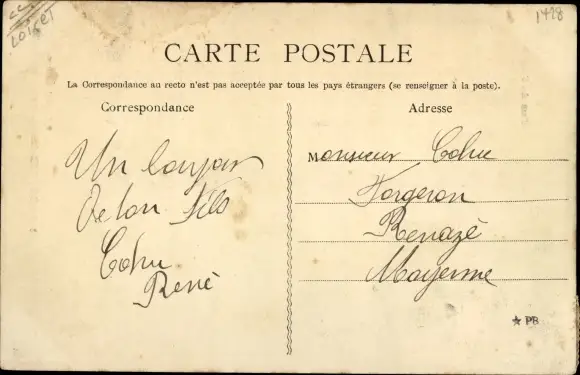 CC
LOIRET
1428
CARTE POSTALE
La Correspondance au recto n'est pas acceptée par tous les pays étrangers (se renseigner à la poste).
Correspondance
Un bonjour
De ton Fils
Cohu
René
Adresse
Monsieur Cohu
Forgeron
Renazé
Mayenne
★ PB